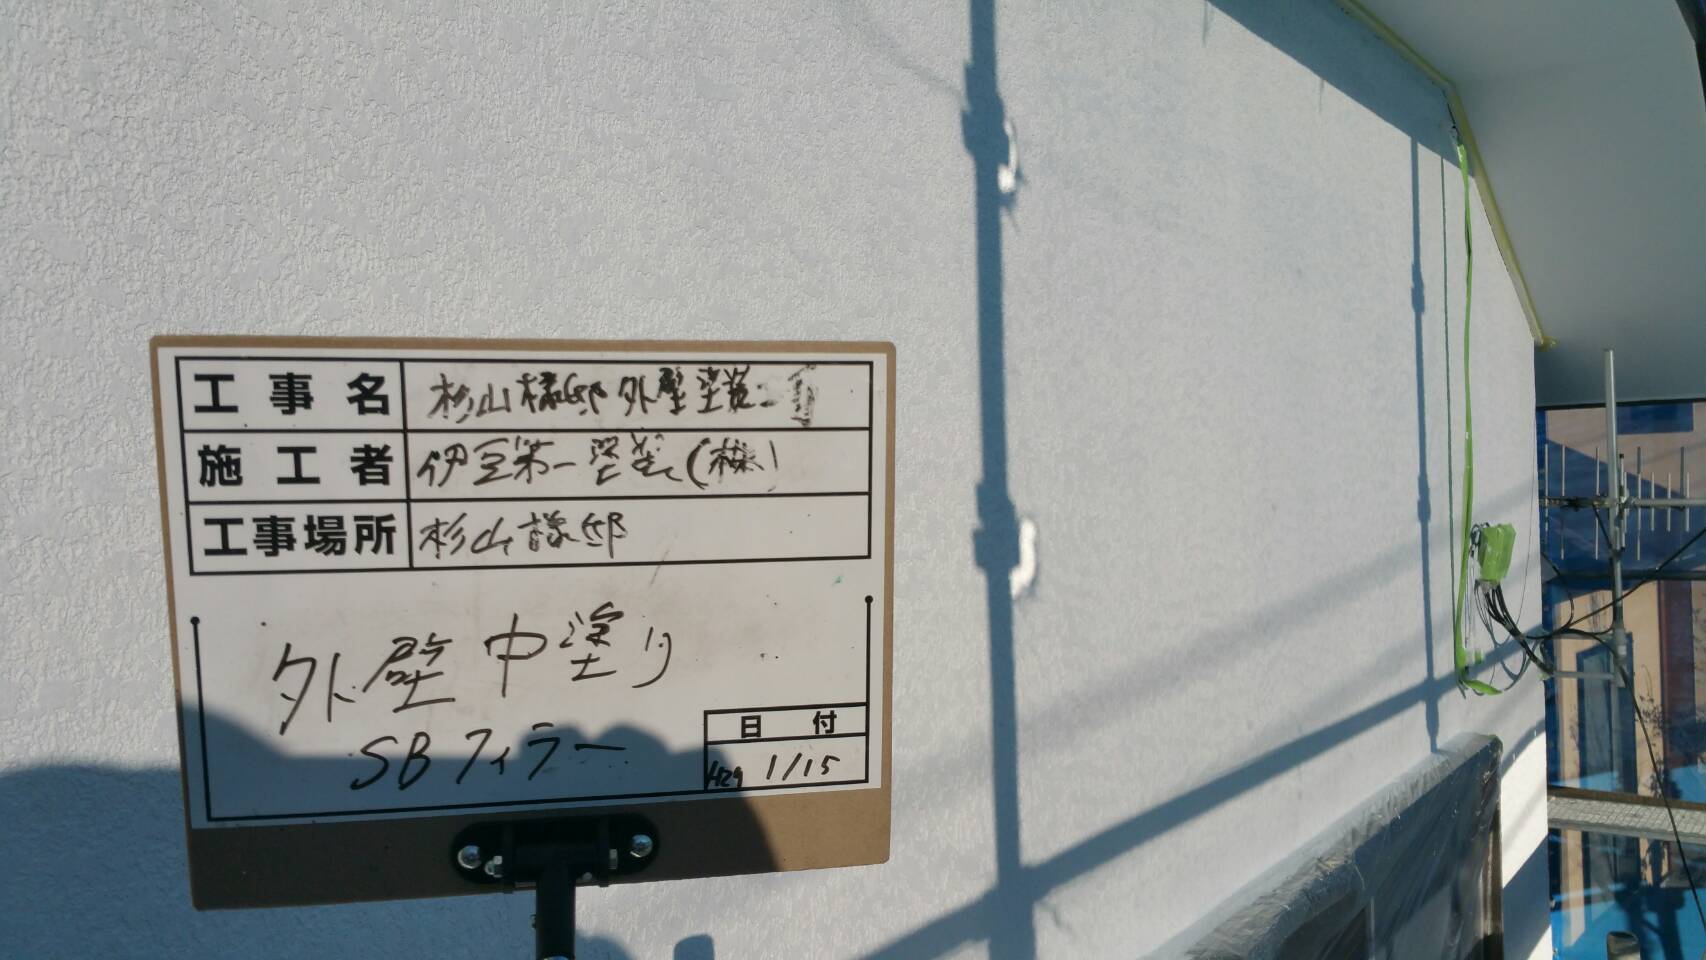 工事名 杉山様邸外壁塗装工事
施工者 伊豆第一塗装(株)
工事場所 杉山様邸
外壁中塗り
SBフィラー
日付
H29 1/15